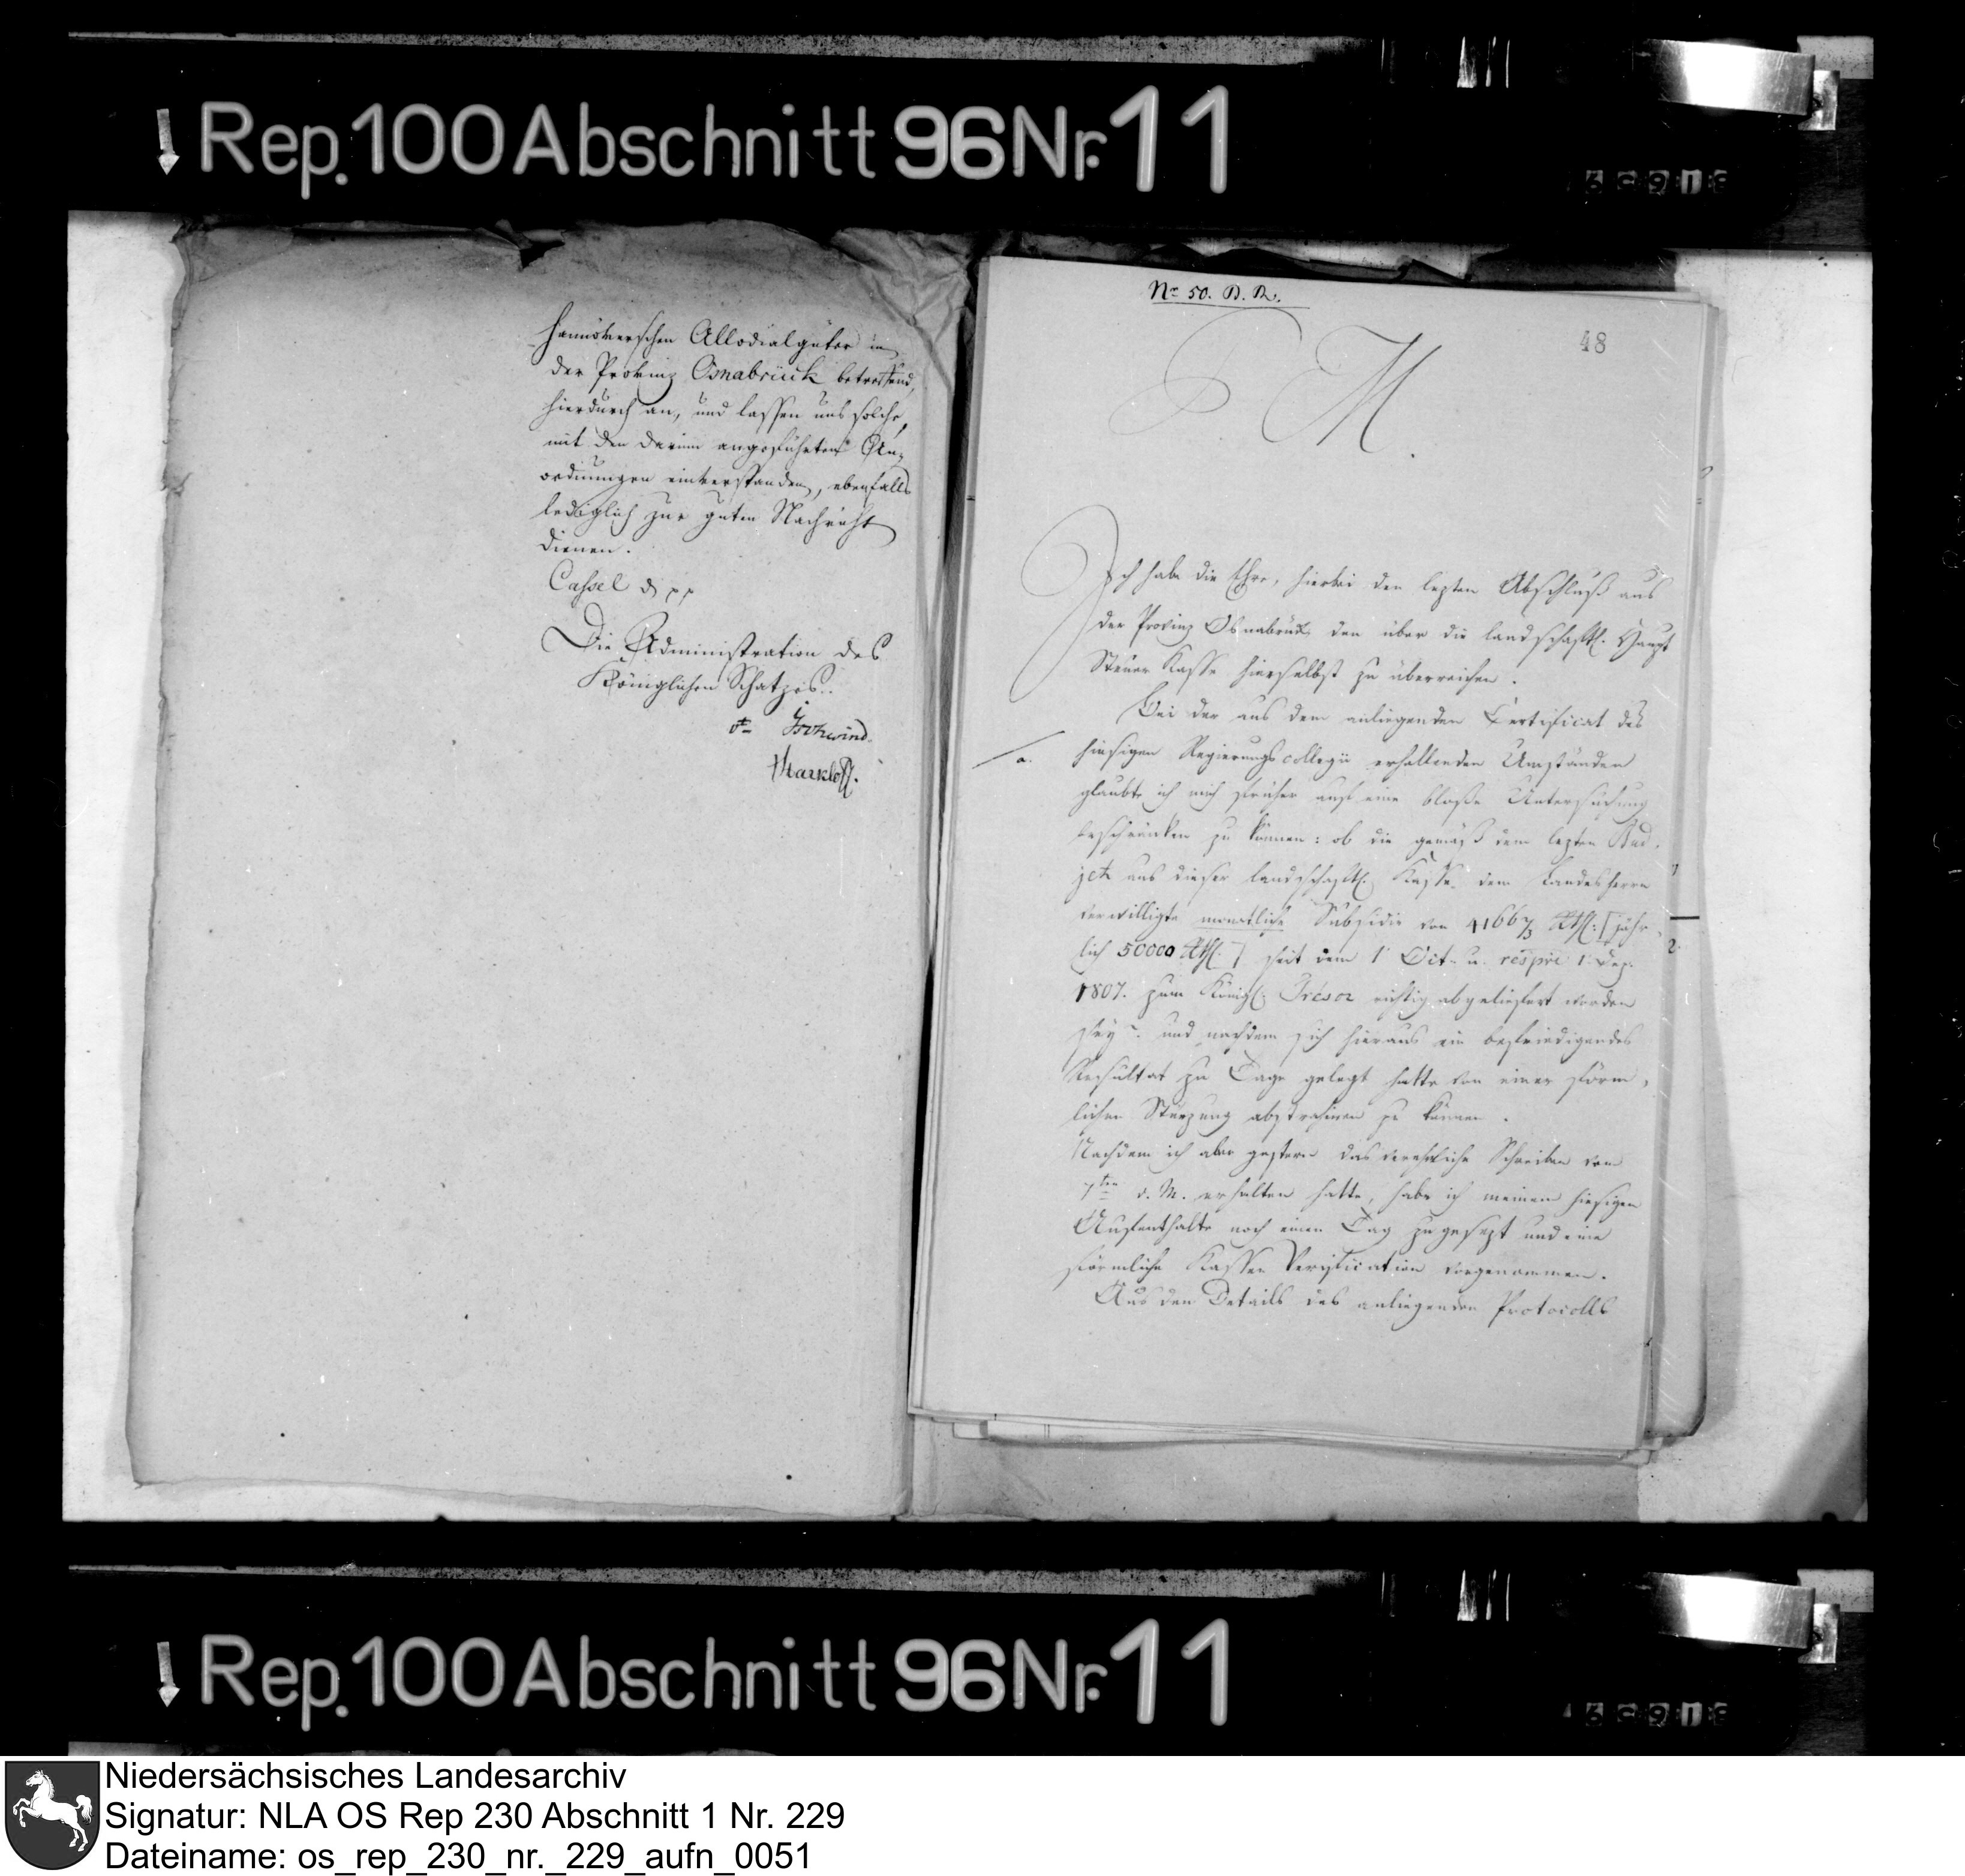 Rep. 100 Abschnitt 96 Nr. 11
hannöverschen Allodialgüter in
der Provinz Osnabrück betreffend,
hierdurch an, und lassen uns solche,
mit den darinn angeführten An-
ordnungen einverstanden, ebenfalls
lediglich zur guten Nachricht
dienen.
Cassel d pp
Die Administration des
Königlichen Schatzes.
Gschwind.
Marklof.
No 50. D. R.
48
P M.
Ich habe die Ehre, hierbei den lezten Abschluß aus
der Provinz Osnabrück, den über die landschaftl. Haupt
Steuer Kasse hierselbst zu überreichen.
Bei der aus dem anliegenden Certificat des
a.
hiesigen Regierungs collegii erhallenden Umständen
glaubte ich mich früher auf eine bloße Untersuchung
beschränken zu können: ob die gemäß dem lezten Bud-
jet aus dieser landschaftl. Kasse dem Landesherrn
verwilligte monatliche Subsidie von 4166⅔ Rthl. [jähr-
lich 50000 Rthl.] seit dem 1 Oct. u. respve 1 Dez.
1807. zum Königl. Trésor richtig abgeliefert worden
sey? und nachdem sich hieraus ein befriedigendes
Resultat zu Tage gelegt hatte von einer förm-
lichen Stürzung abstrahiren zu können.
Nachdem ich aber gestern das verehrliche Schreiben vom
7ten d. M. erhalten hatte, habe ich meinem hiesigen
Aufenthalte noch einen Tag zugesezt und eine
förmliche Kassen Verification vorgenommen.
Aus den Details des anliegenden Protocolls
Rep. 100 Abschnitt 96 Nr. 11
Niedersächsisches Landesarchiv
Signatur: NLA OS Rep 230 Abschnitt 1 Nr. 229
Dateiname: os_rep_230_nr._229_aufn_0051